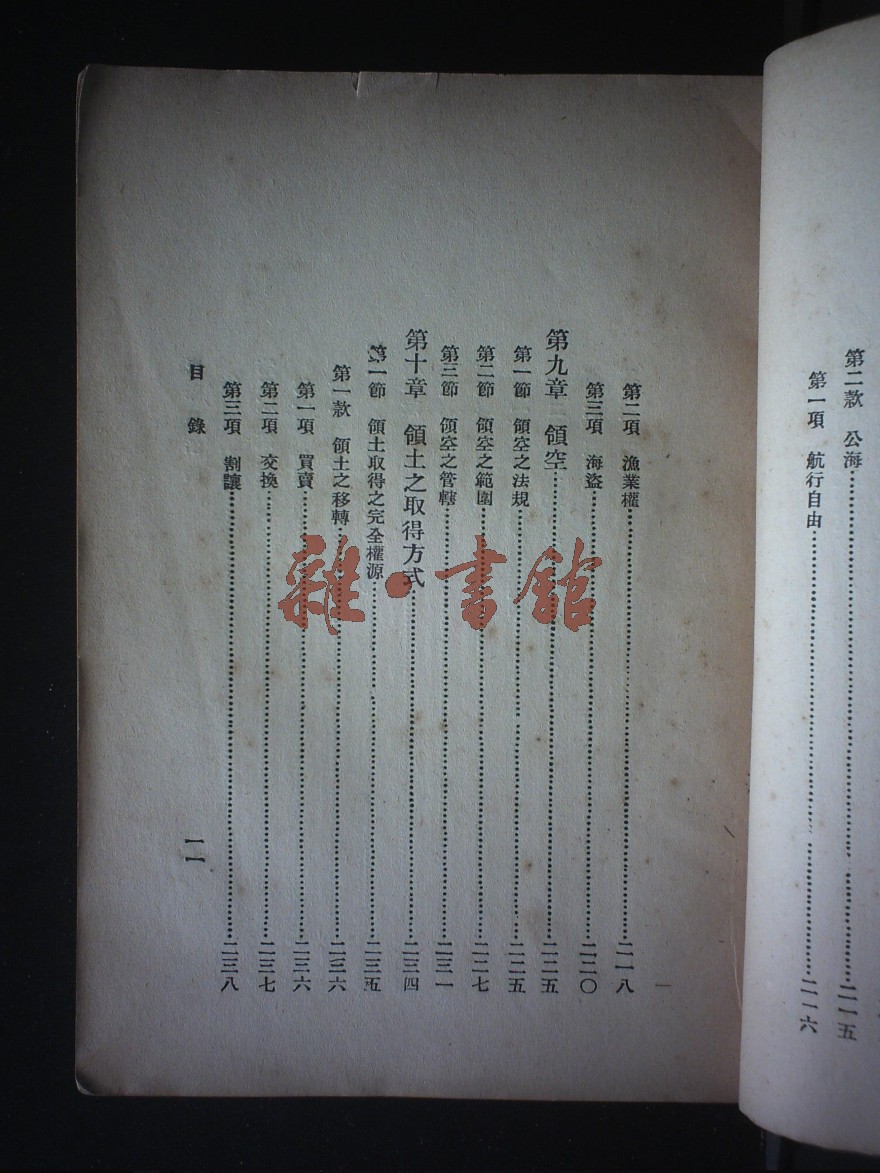 第二款　公海……二一五
第一項　航行自由……二一六
第二項　漁業權……二一八
第三項　海盜……二二〇
第九章　領空……二二五
第一節　領空之法規……二二五
第二節　領空之範圍……二二七
第三節　領空之管轄……二三一
第十章　領土之取得方式……二三四
第一節　領土取得之完全權源……二三五
第一款　領土之移轉……二三六
第一項　買賣……二三六
第二項　交換……二三七
第三項　割讓……二三八
目　錄
一一
雜·書館